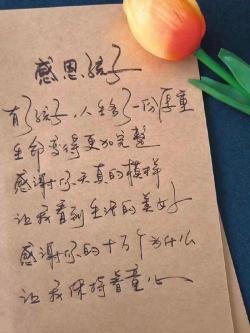 感恩孩子
有了孩子，人生多了一份厚重
生命变得更加完整
感谢你天真的模样
让我看到生活的美好
感谢你的十万个为什么
让我保持着童心